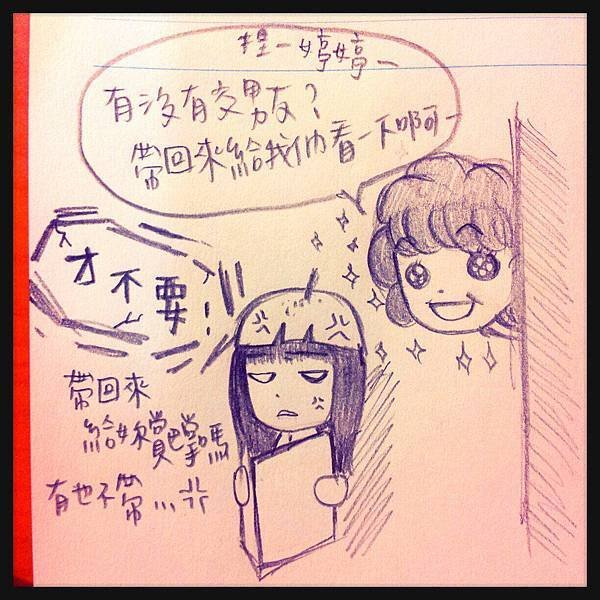 捏ー婷婷ー
有沒有交男友？
帶回來給我們看一下啊ー
才不要！
帶回來
給妳賞巴掌嗎
有也不帶...